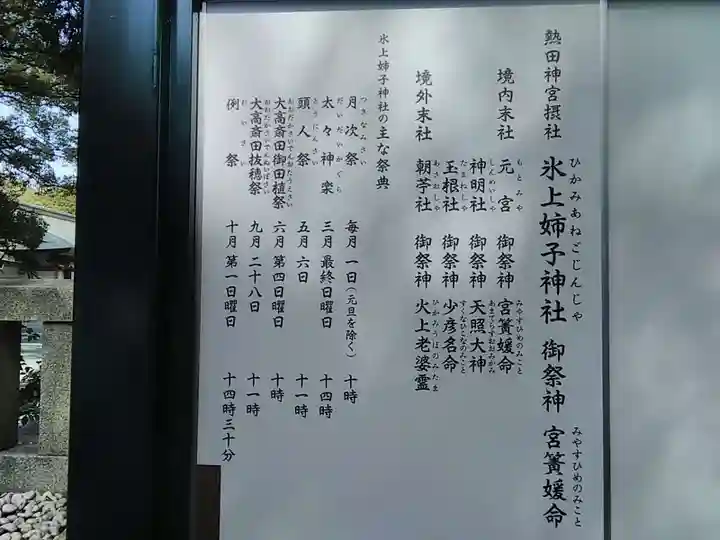 熱田神宮摂社 氷上姉子神社 御祭神 宮簀媛命
ひかみあねごじんじゃ みやすひめのみこと
境内末社 元宮 御祭神 宮簀媛命
もとみや みやすひめのみこと
神明社 御祭神 天照大神
しんめいしゃ あまてらすおおみかみ
境外末社 玉根社 御祭神 少彦名命
たまねしゃ すくなひこなのみこと
朝苧社 御祭神 火上老婆霊
あさおしゃ ひかみうばのみたま
氷上姉子神社の主な祭典
月次祭 毎月一日(元旦を除く) 十時
つきなみさい
太々神楽 三月最終日曜日 十四時
だいだいかぐら
頭人祭 五月六日 十一時
とうにんさい
大高斎田御田植祭 六月第四日曜日 十時
おおだかさいでんおたうえさい
大高斎田抜穂祭 九月二十八日 十一時
おおだかさいでんぬいぼさい
例祭 十月第一日曜日 十四時三十分
れいさい